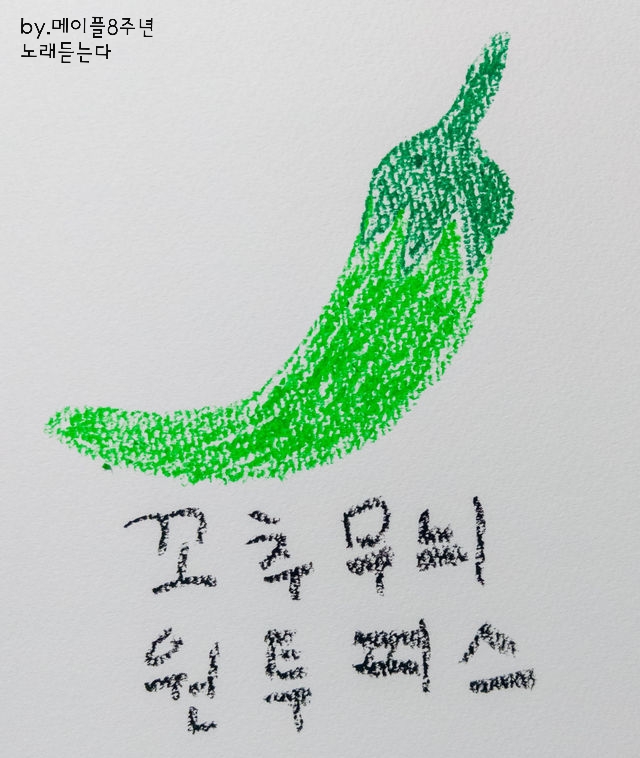 by.메이플8주년
노래듣는다
꼬추무븨
원투퍽스